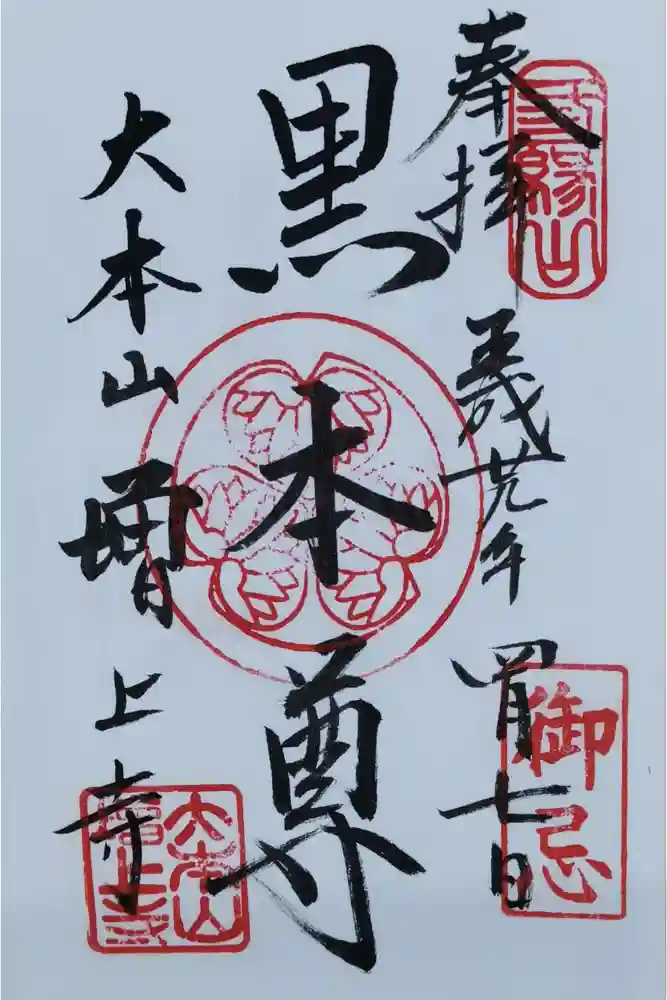 奉拝
三縁山
平成廿九年
四月七日
御忌
黒本尊
大本山増上寺
大本山
増上寺